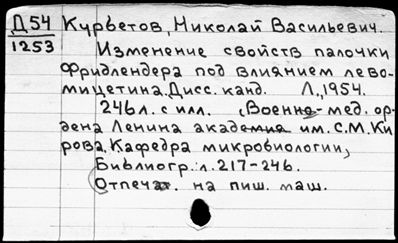 Д54 Курбетов, Николай Васильевич.
1253
Изменение свойств палочки
Фридлендера под влиянием лево-
мицетина. Дисс. канд. Л., 1954.
246 л. с илл. (Военно-мед. ор-
дена Ленина академия им. С.М. Ки
рова. Кафедра микробиологии)
Библиогр: л. 217-246.
Отпечат. на пиш. маш.